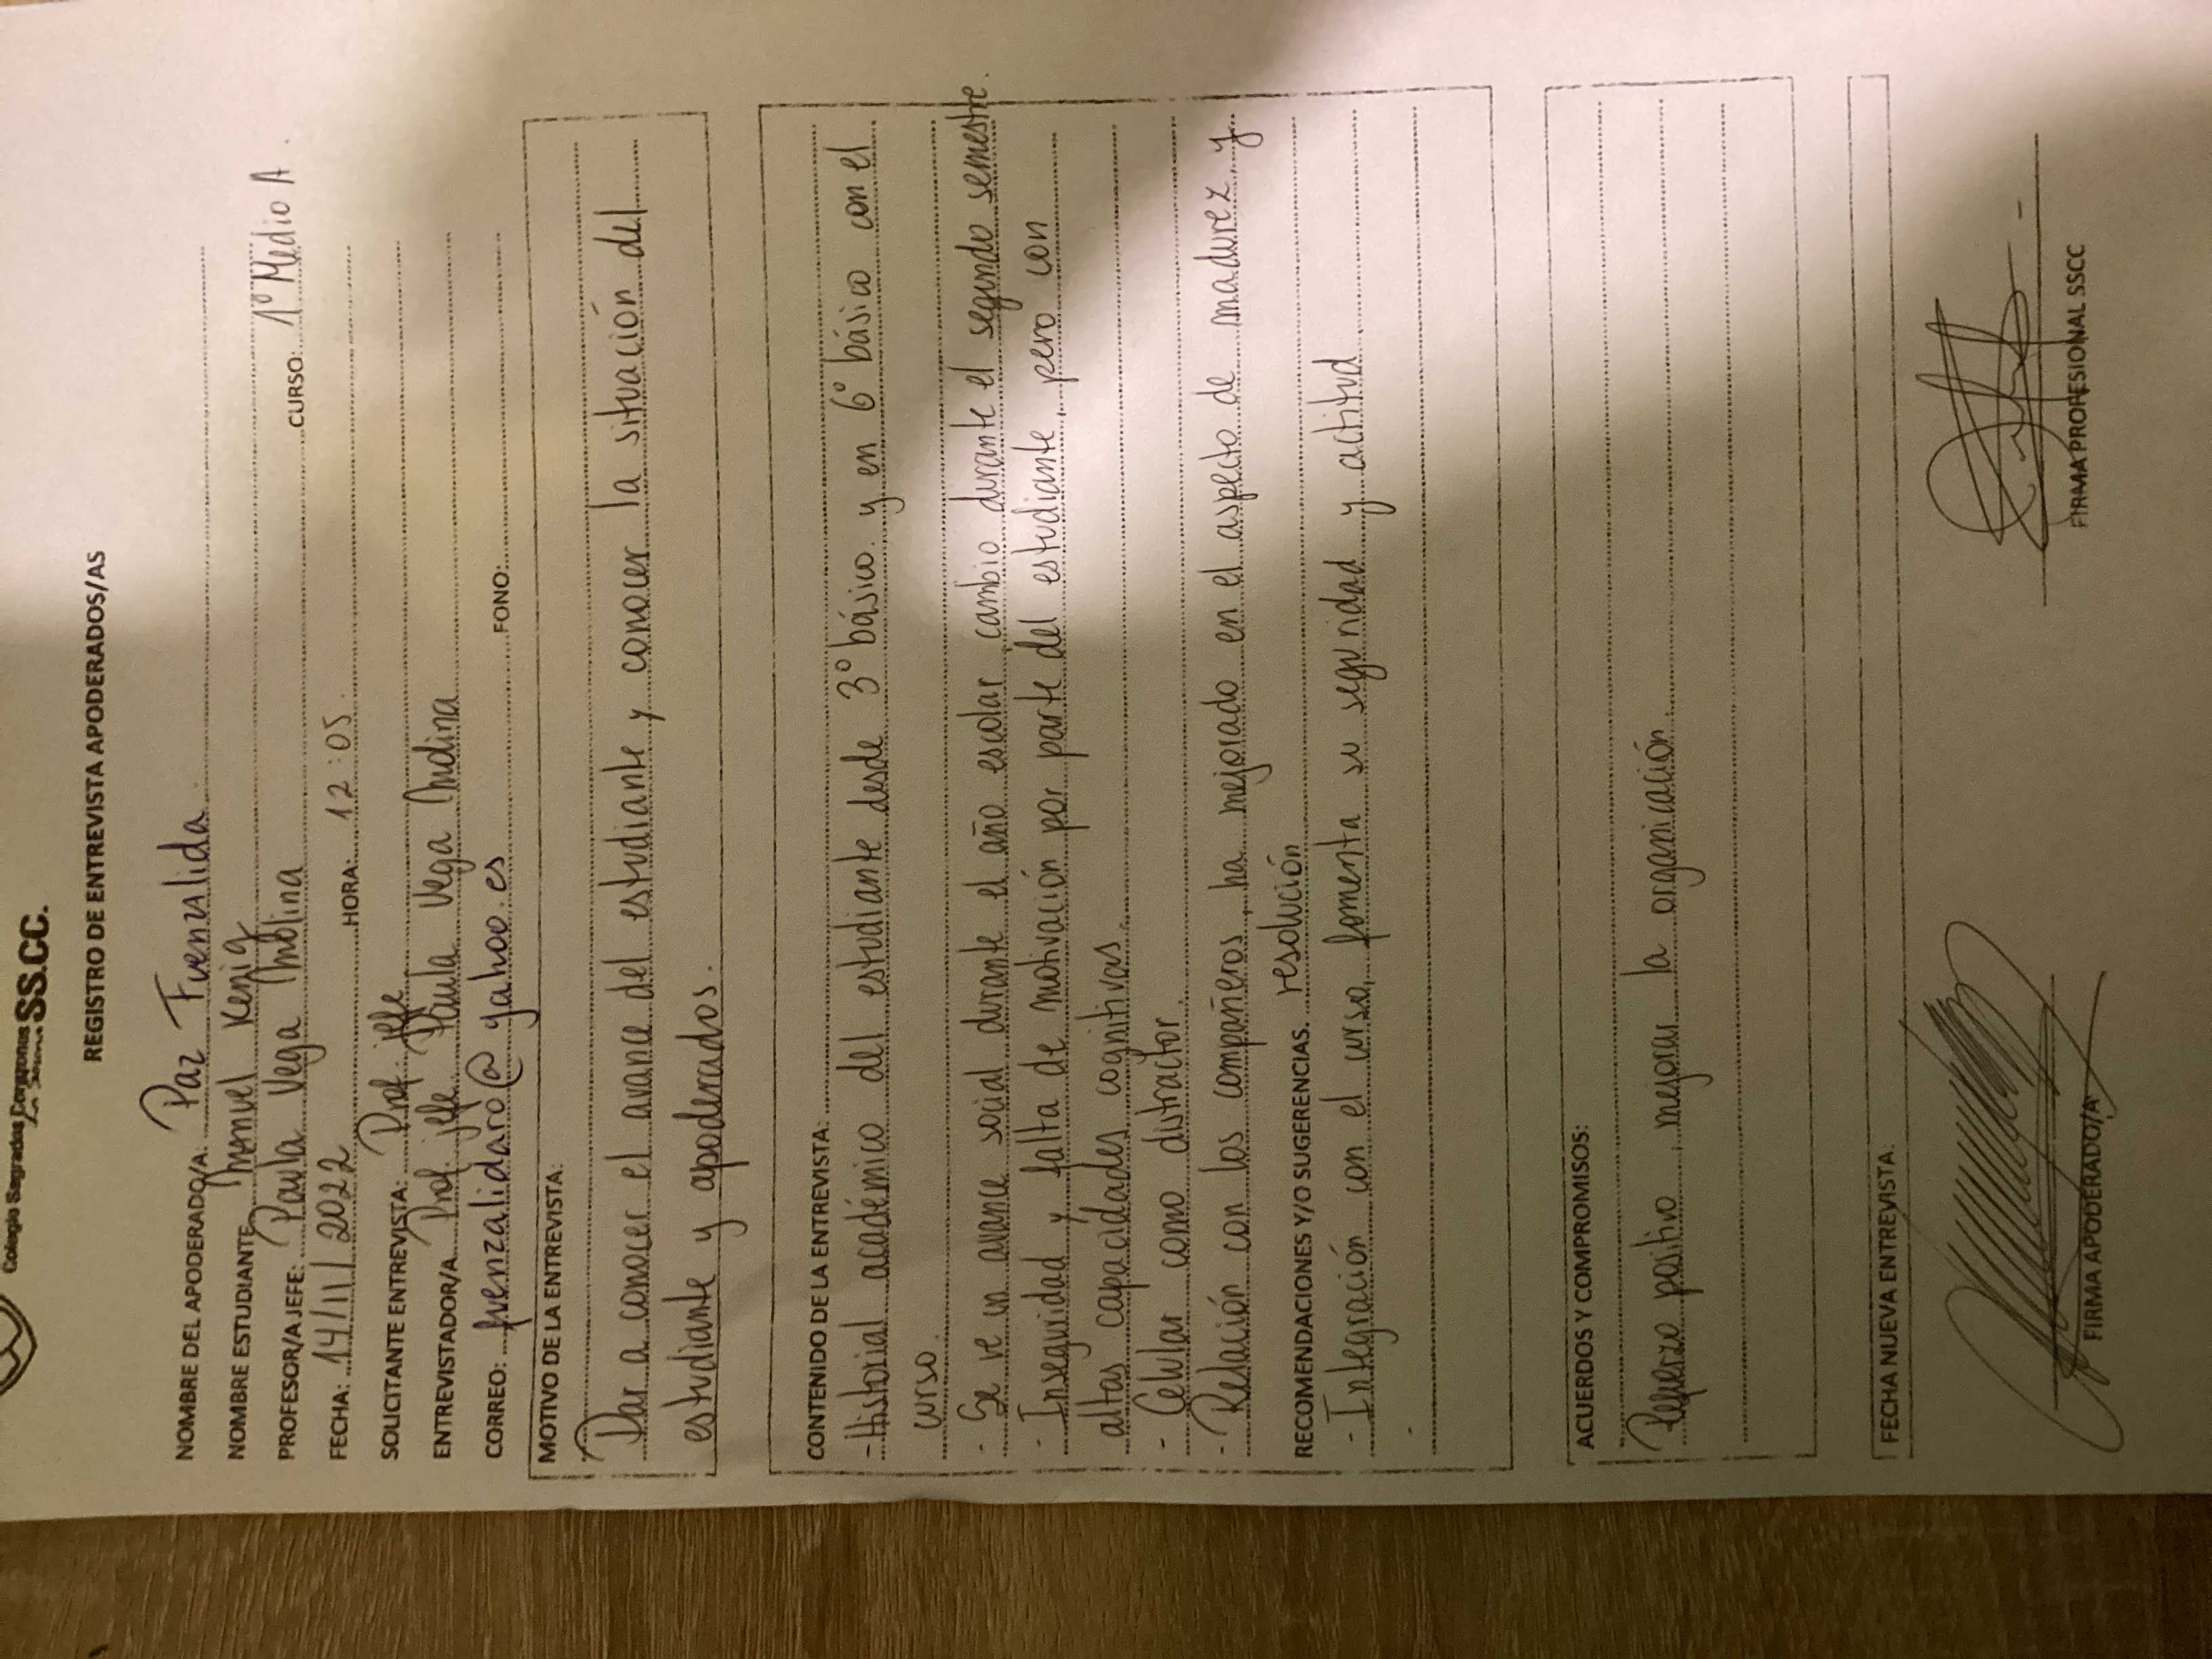 Colegio Sagrados Corazones SS.CC.
REGISTRO DE ENTREVISTA APODERADOS/AS
NOMBRE DEL APODERADO/A: Paz Fuenzalida
NOMBRE ESTUDIANTE Manuel Kenig
PROFESOR/A JEFE: Paula Vega Molina CURSO: 1º Medio A.
FECHA: 14/11/2022 HORA: 12:05
SOLICITANTE ENTREVISTA: Prof. jefe
ENTREVISTADOR/A Prof. jefe Paula Vega
CORREO: fuenzalidaro@yahoo.es FONO:
MOTIVO DE LA ENTREVISTA:
Dar a conocer el avance del estudiante y conocer la situación del
estudiante y apoderados.
CONTENIDO DE LA ENTREVISTA:
- Historial académico del estudiante desde 3º básico y en 6º básico con el
curso.
- Se ve un avance social durante el año escolar, cambio durante el segundo semestre.
- Inseguridad y falta de motivación por parte del estudiante, pero con
altas capacidades cognitivas.
- Celular como distractor.
- Relación con los compañeros, ha mejorado en el aspecto de madurez y
RECOMENDACIONES Y/O SUGERENCIAS. resolución
- Integración con el curso, fomenta su seguridad y actitud
-
ACUERDOS Y COMPROMISOS:
Refuerzo positivo, mejorar la organización.
FECHA NUEVA ENTREVISTA:
FIRMA APODERADO/A
FIRMA PROFESIONAL SSCC